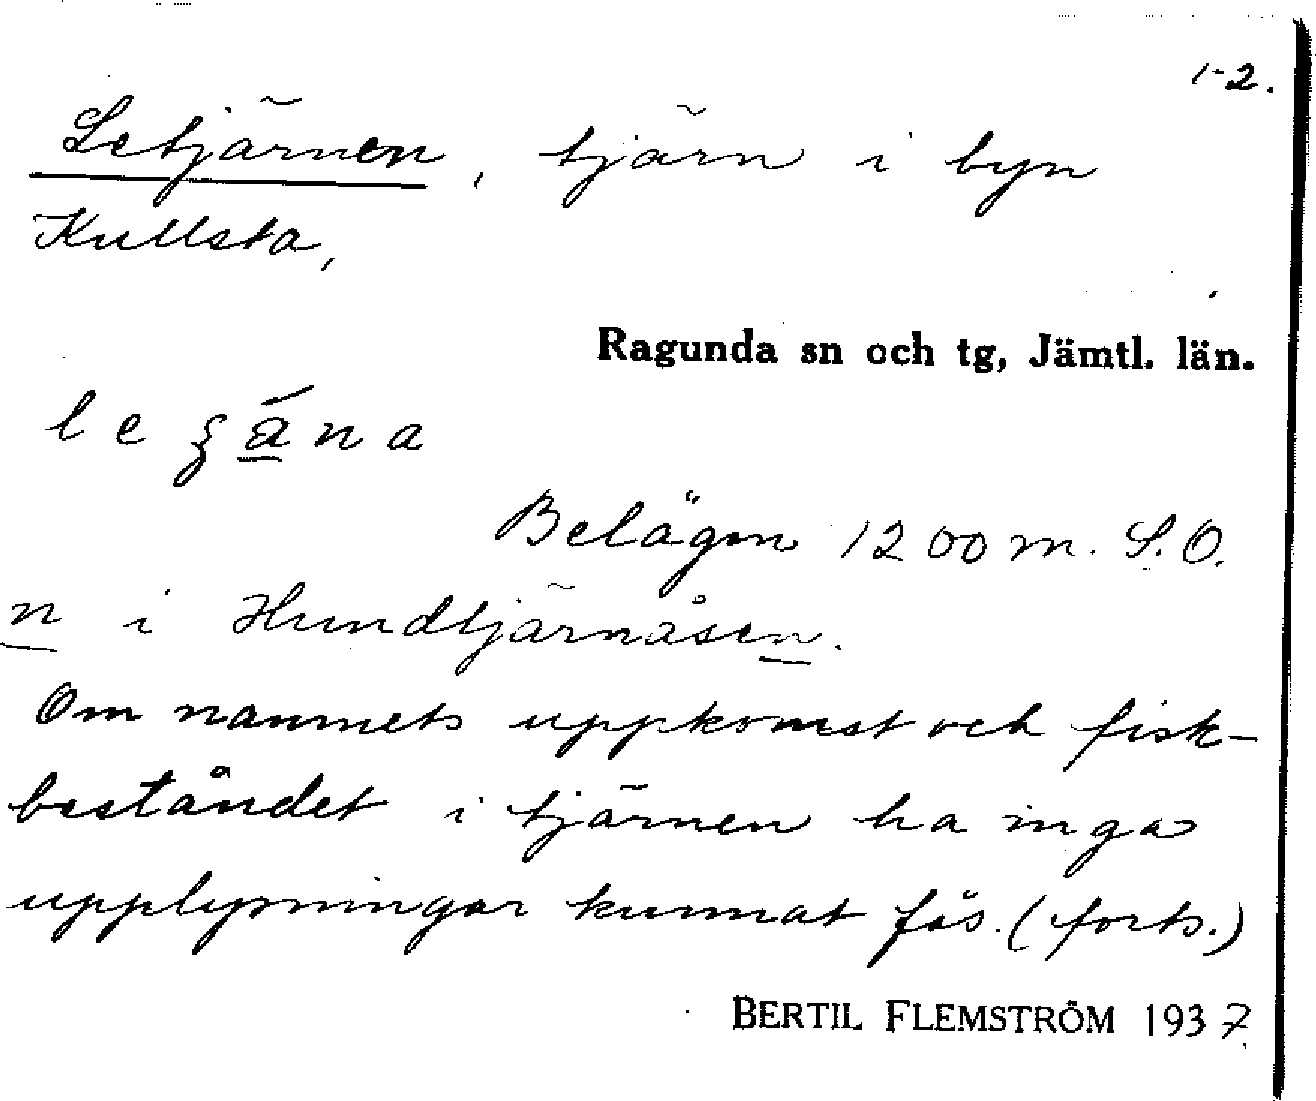 1-2.
Letjärnen, tjärn i byn
Kullsta,
Ragunda sn och tg, Jämtl. län.
Belägen 1200 m. S.O.
n i Hundtjärnåsen.
Om namnets uppkomst och fisk-
beståndet i tjärnen ha inga
upplysningar kunnat fås. (forts.)
BERTIL FLEMSTRÖM 1937